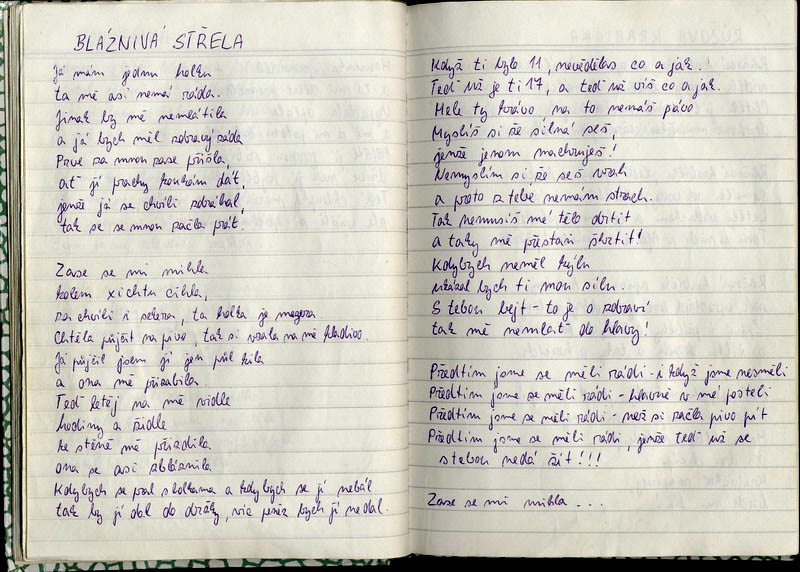 BLÁZNIVÁ STŘELA
Já mám jednu holku
ta mě asi nemá ráda.
Jinak by mě nemlátila
a já bych měl zdravý záda
Prve za mnou zase přišla,
ať jí prachy koukám dát,
jenže já se chvíli zdráhal,
tak se se mnou začla prát.
Zase se mi mihla
kolem xichtu cihla,
za chvíli i sekera, ta holka je megera
Chtěla půjčit na pivo, tak si vzala na mě kladivo.
Já půjčil jsem jí jen půl kila
a ona mě přizabila
Teď letěj na mě vidle
hodiny a židle
ke stěně mě přirazila
ona se asi zbláznila
Kdybych se pral s holkama a kdybych se jí nebál
tak by jí dal do držky, víc peněz bych jí nedal.
Když ti bylo 11, nevědělas co a jak.
Teď už je ti 17, a teď už víš co a jak.
Hele ty krávo na to nemáš právo
Myslíš si že silná seš,
jenže jenom machruješ!
Nemyslím si že seš vrah
a proto z tebe nemám strach.
Tak nemusíš mé tělo drtit
a taky mě přestaň škrtit!
Kdybych neměl kýlu
ukázal bych ti mou sílu.
S tebou bejt - to je o zdraví
tak mě nemlať do hlavy!
Předtím jsme se měli rádi - i když jsme nesměli
Předtím jsme se měli rádi - hlavně v mé posteli
Předtím jsme se měli rádi - než si začla pivo pít
Předtím jsme se měli rádi, jenže teď už se
s tebou nedá žít!!!
Zase se mi mihla...